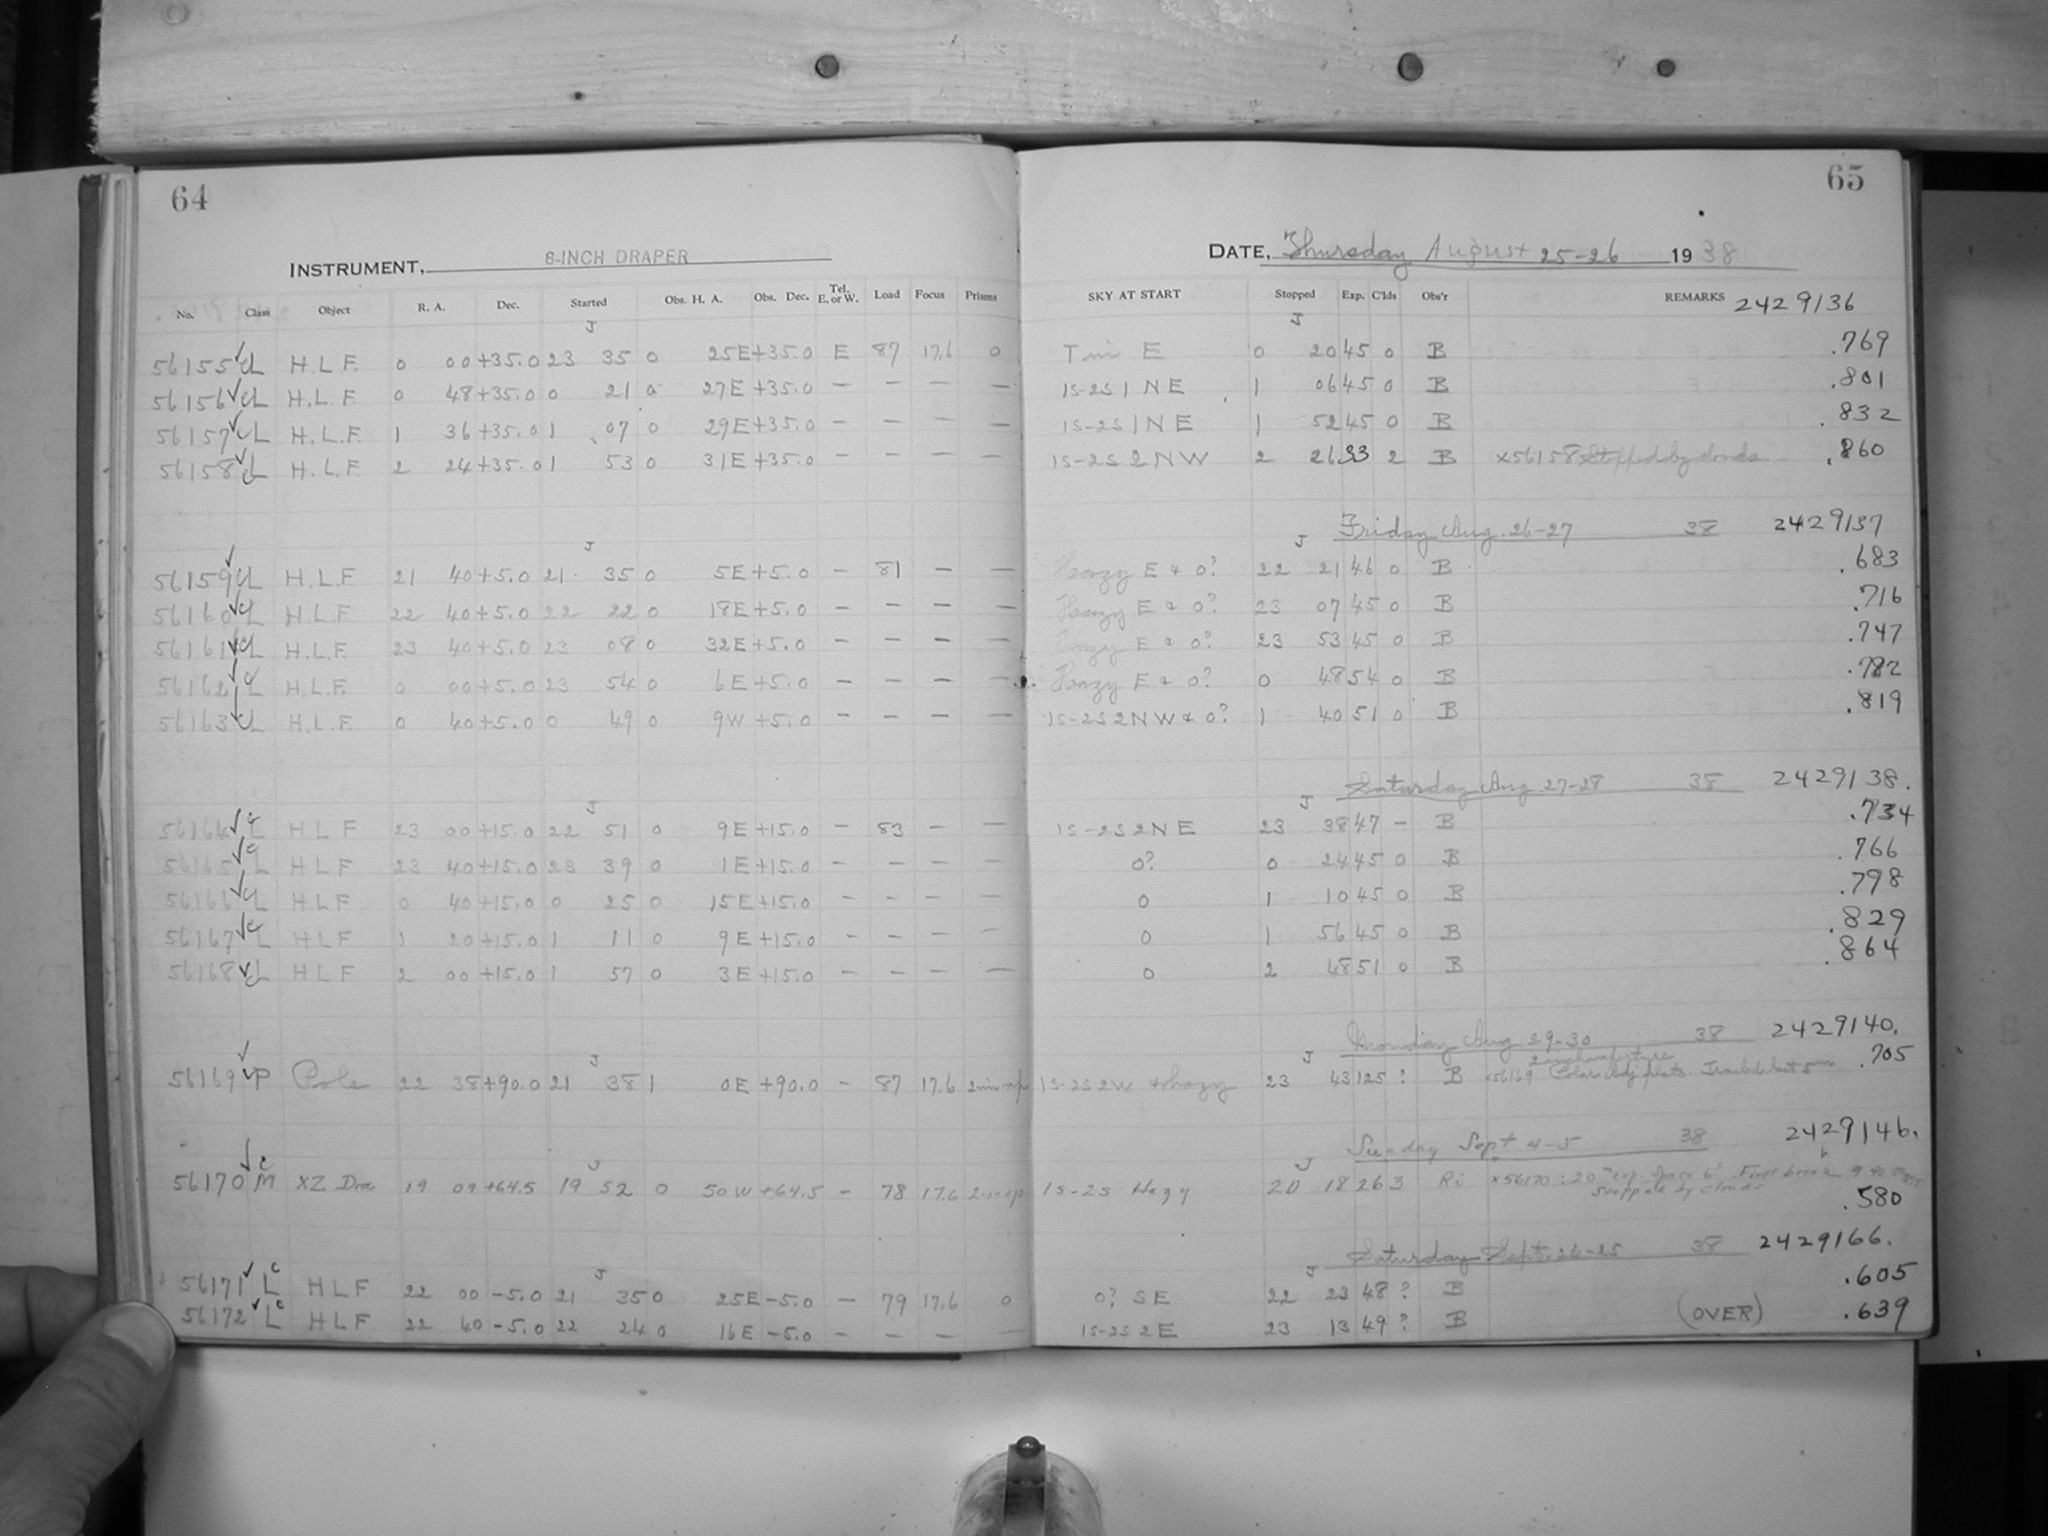 64
INSTRUMENT, 8-INCH DRAPER
No. Class Object R. A. Dec. Started Obs. H. A. Obs. Dec. Tel. E. or W. Load Focus Prisms
J
56155 CL H.L.F. 0 00 +35.0 23 35 0 25E +35.0 E 87 17.6 0
56156 CL H.L.F. 0 48 +35.0 0 21 0 27E +35.0 — — — —
56157 CL H.L.F. 1 36 +35.0 1 07 0 29E +35.0 — — — —
56158 CL H.L.F. 2 24 +35.0 1 53 0 31E +35.0 — — — —
J
56159 CL H.L.F 21 40 +5.0 21 35 0 5E +5.0 — 81 — —
56160 CL H.L.F 22 40 +5.0 22 22 0 18E +5.0 — — — —
56161 CL H.L.F. 23 40 +5.0 23 08 0 32E +5.0 — — — —
56162 CL H.L.F. 0 00 +5.0 23 54 0 6E +5.0 — — — —
56163 CL H.L.F. 0 40 +5.0 0 49 0 9W +5.0 — — — —
J
56164 CL H L F 23 00 +15.0 22 51 0 9E +15.0 — 83 — —
56165 CL H L F 23 40 +15.0 23 39 0 1E +15.0 — — — —
56166 CL H L F 0 40 +15.0 0 25 0 15E +15.0 — — — —
56167 CL H L F 1 20 +15.0 1 11 0 9E +15.0 — — — —
56168 CL H L F 2 00 +15.0 1 57 0 3E +15.0 — — — —
J
56169 P Pole 22 38 +90.0 21 38 1 0E +90.0 — 87 17.6 2 in ap
J
56170 MC XZ Dra 19 09 +64.5 19 52 0 50W +64.5 — 78 17.6 2 in ap
J
56171 LC H L F 22 00 -5.0 21 35 0 25E -5.0 — 79 17.6 0
56172 LC H L F 22 40 -5.0 22 24 0 16E -5.0 — — — —
65
DATE, Thursday August 25-26 1938
SKY AT START Stopped Exp. C'lds Obs'r REMARKS 2429136
J
E 0 20 45 0 B .769
1S-2S 1 N E 1 06 45 0 B .801
1S-2S 1 N E 1 52 45 0 B .832
1S-2S 2 N W 2 26 33 2 B x56158 Stopped by clouds .860
Friday Aug. 26-27 38 2429137
J
Hazy E & 0? 22 21 46 0 B .683
Hazy E & 0? 23 07 45 0 B .716
Hazy E & 0? 23 53 45 0 B .747
Hazy E & 0? 0 48 54 0 B .782
1S-2S 2 N W & 0? 1 40 51 0 B .819
Saturday Aug. 27-28 38 2429138.
J
1S-2S 2 N E 23 38 47 — B .734
0? 0 24 45 0 B .766
0 1 10 45 0 B .798
0 1 56 45 0 B .829
0 2 48 51 0 B .864
Monday Aug 29-30 38 2429140.
J
2 inch aperture
1S-2S 2W & hazy 23 43 125 ? B x56169 Polar Adj plate. Trailed last 5m .705
Sunday Sept 4-5 38 2429146.
J
1S-2S Hazy 20 18 26 3 Ri x56170: 20m exp. Space 6s First break 9 40
stopped by clouds .580
Saturday Sept. 24-25 38 2429166.
J
0? S E 22 23 48 ? B .605
1S-2S 2 E 23 13 49 ? B (OVER) .639